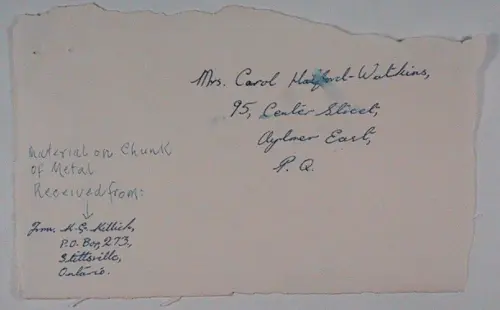 Mrs. Carol Halford-Watkins,
95, Center Street,
Aylmer East,
P. Q.
Material on Chunk
of Metal
Received from:
From. K.G.
P.O. Box, 273,
Stittsville,
Ontario.